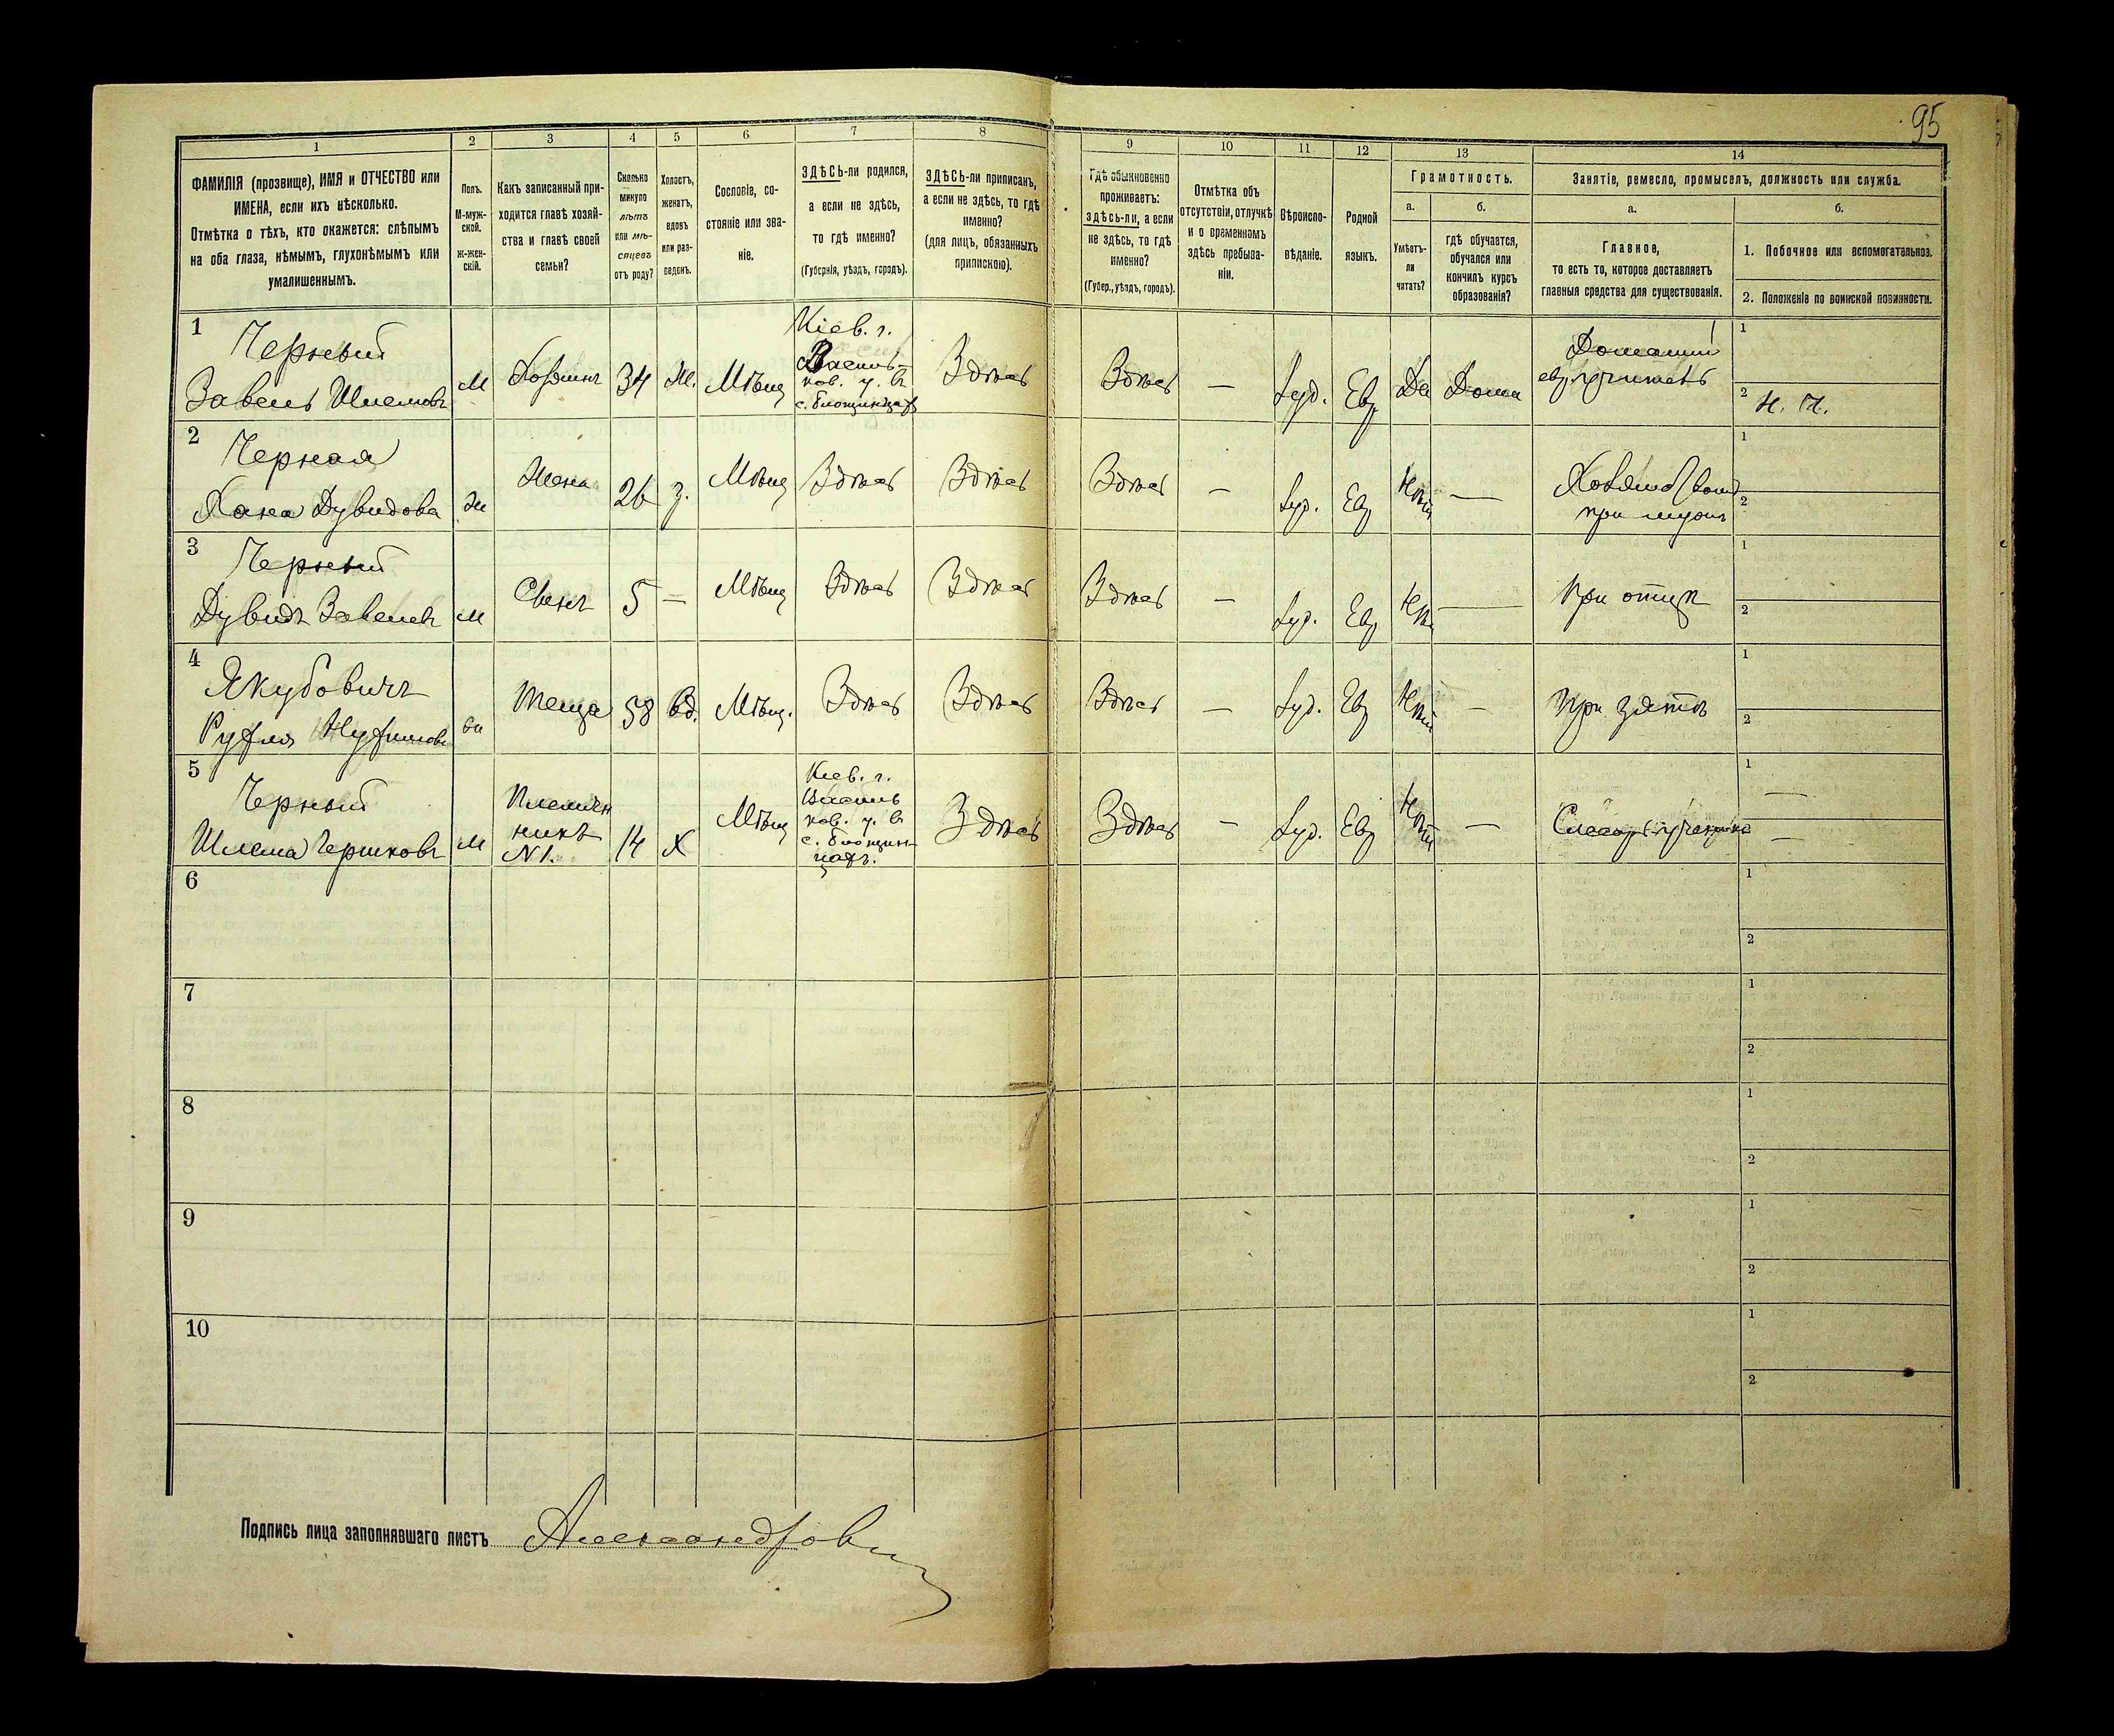 95
1
2
3
4
5
6
7
8
9
10
11
12
13
14
ФАМИЛІЯ (прозвище), ИМЯ и ОТЧЕСТВО или
ИМЕНА, если ихъ нѣсколько.
Отмѣтка о тѣхъ, кто окажется: слѣпымъ
на оба глаза, нѣмымъ, глухонѣмымъ или
умалишеннымъ.
Полъ.
М-муж-
ской.
Ж-жен-
скій.
Какъ записанный при-
ходится главѣ хозяй-
ства и главѣ своей
семьи?
Сколько
минуло
лѣтъ
или мѣ-
сяцевъ
отъ роду?
Холостъ,
женатъ,
вдовъ
или раз-
веденъ.
Сословіе, со-
стояніе или зва-
ніе.
ЗДѢСЬ-ли родился,
а если не здѣсь,
то гдѣ именно?
(Губернія, уѣздъ, городъ).
ЗДѢСЬ-ли приписанъ,
а если не здѣсь, то гдѣ
именно?
(для лицъ, обязанныхъ
припискою).
Гдѣ обыкновенно
проживаетъ:
здѣсь-ли, а если
не здѣсь, то гдѣ
именно?
(Губер., уѣздъ, городъ).
Отмѣтка объ
отсутствіи, отлучкѣ
и о временномъ
здѣсь пребыва-
ніи.
Вѣроиспо-
вѣданіе.
Родной
языкъ.
Грамотность.
а.
Умѣетъ-
ли
читать?
б.
гдѣ обучается,
обучался или
кончилъ курсъ
образованія?
Занятіе, ремесло, промыселъ, должность или служба.
а.
Главное,
то есть то, которое доставляетъ
главныя средства для существованія.
б.
1. Побочное или вспомогательное.
2. Положеніе по воинской повинности.
1
Черный
Завель Шлемовъ
М
Хозяинъ
34
Ж.
Мѣщ
Кіев. г.
Василь-
ков. у. въ
с. Блощинцахъ
Здѣсь
Здѣсь
—
Іуд.
Евр
Да
Дома
Домашній
евр. учитель
1
2 Н. Ч.
2
Черная
Хана Дувидова
Ж
Жена
26
з.
Мѣщ
Здѣсь
Здѣсь
Здѣсь
—
Іуд.
Евр
Нѣтъ
—
при мужѣ
1
2
3
Черный
Дувидъ Завелевъ
М
Сынъ
5
—
Мѣщ
Здѣсь
Здѣсь
Здѣсь
—
Іуд.
Евр
Нѣтъ
—
При отцѣ
1
2
4
Якубовичъ
Рухля Нухимова
Ж
Теща
58
Вд.
Мѣщ.
Здѣсь
Здѣсь
Здѣсь
—
Іуд.
Евр
Нѣтъ
—
При зятѣ
1
2
5
Черный
Шлема Гершковъ
М
Племян
никъ
N 1.
14
Х
Мѣщ
Кіев. г.
Василь
ков. у. въ
с. Блощин-
цахъ.
Здѣсь
Здѣсь
—
Іуд.
Евр
Нѣтъ
—
Слесарь
1 —
2 —
6
1
2
7
1
2
8
1
2
9
1
2
10
1
2
Подпись лица заполнявшаго листъ